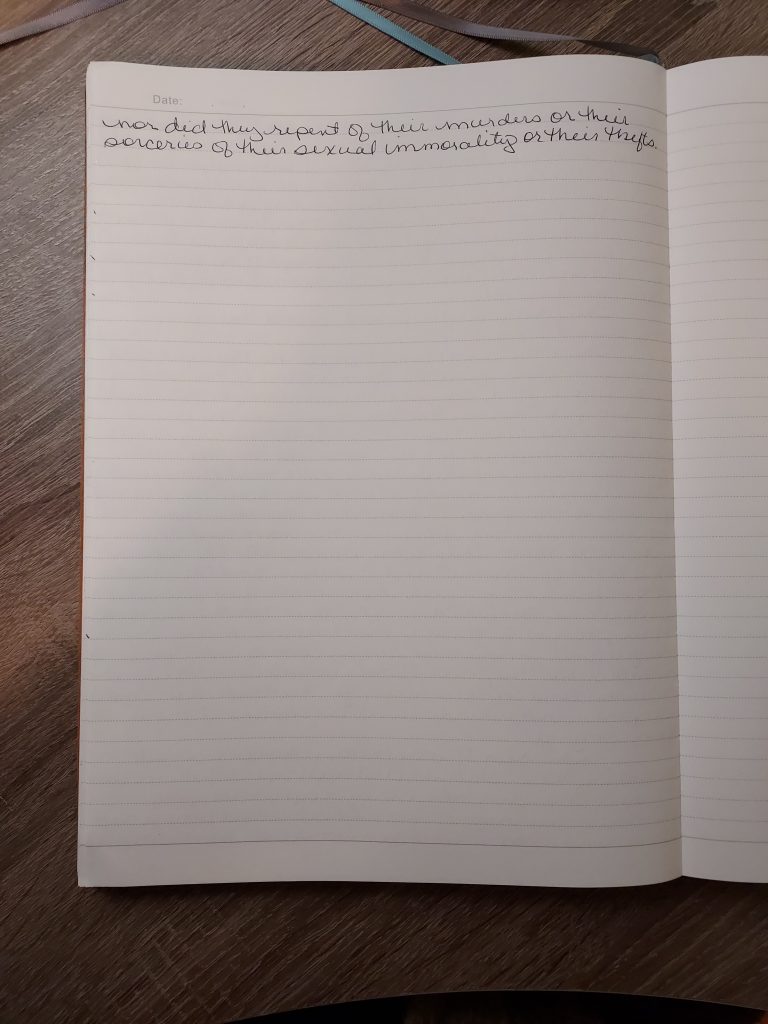 Date:
nor did they repent of their murders or their
sorceries of their sexual immorality or their thefts.